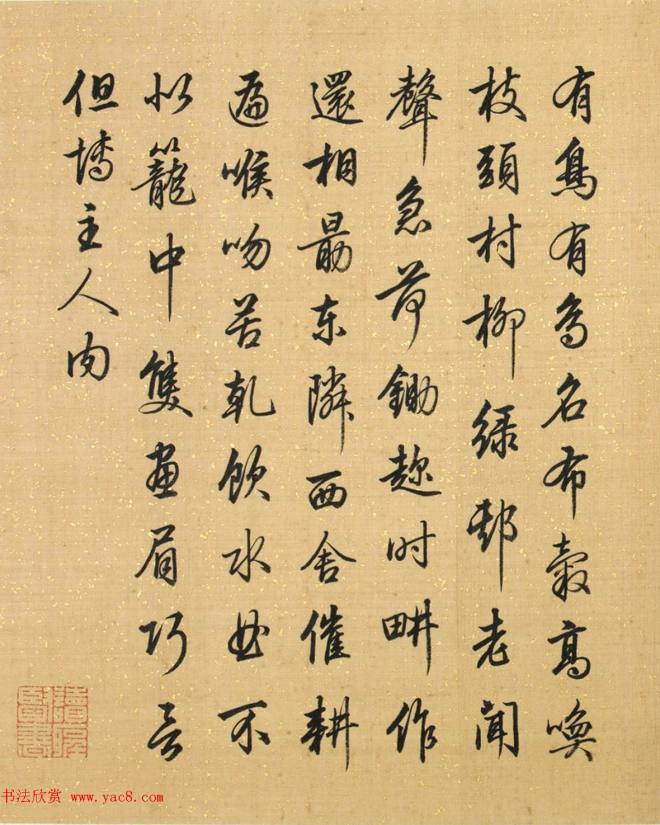 有鳥有鳥名布穀高喚
枝頭村柳綠老聞
聲急荷鋤趂時畊作
還相勗東隣西舍催耕
遍喉吻苦乾飲水不
似籠中隻畫眉巧言
但博主人肉
书法欣赏 www.yac8.com